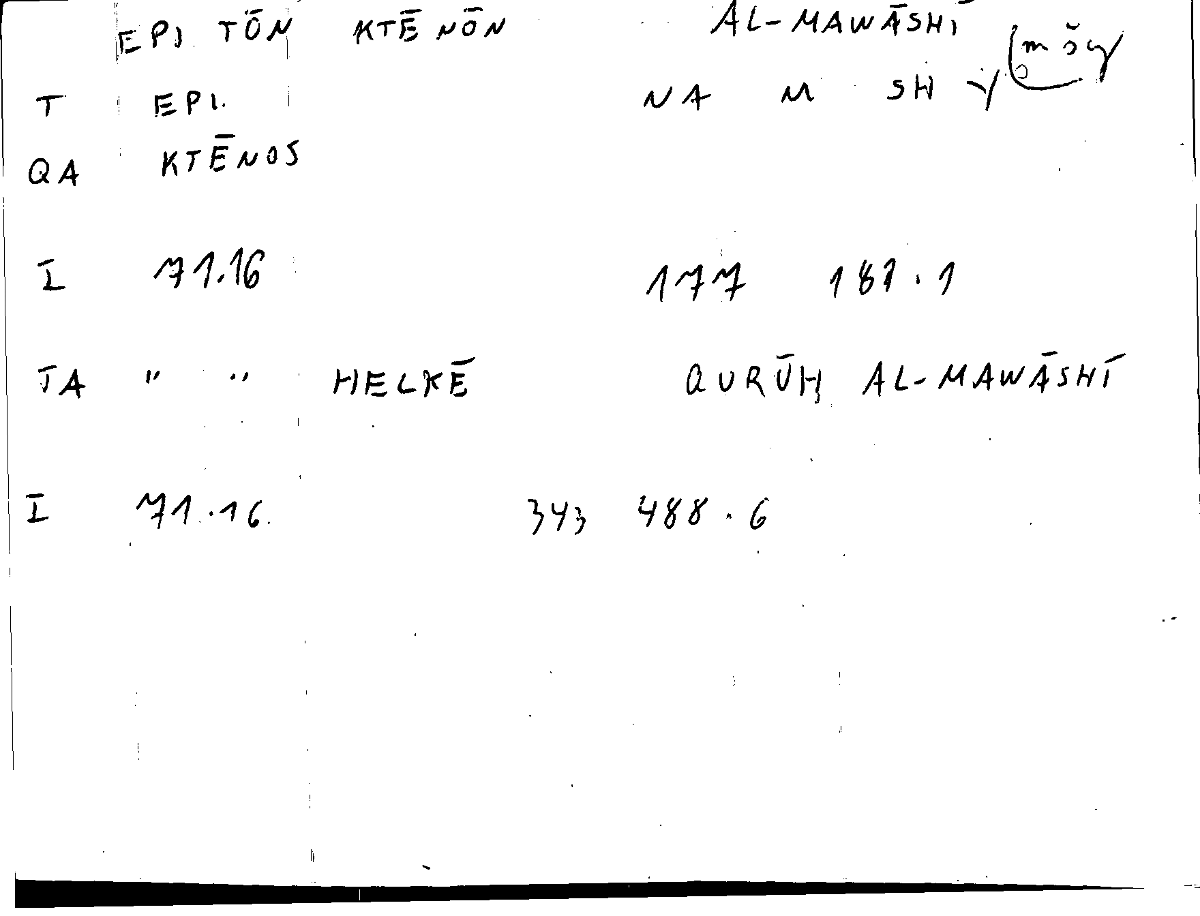 EPI TŌN KTĒNŌN AL-MAWĀSHĪ
T EPI. NA M SH Y
QA KTĒNOS
I 71.16 177 181.1
JA " " HELKĒ QURŪḤ AL-MAWĀSHĪ
I 71.16 343 488.6